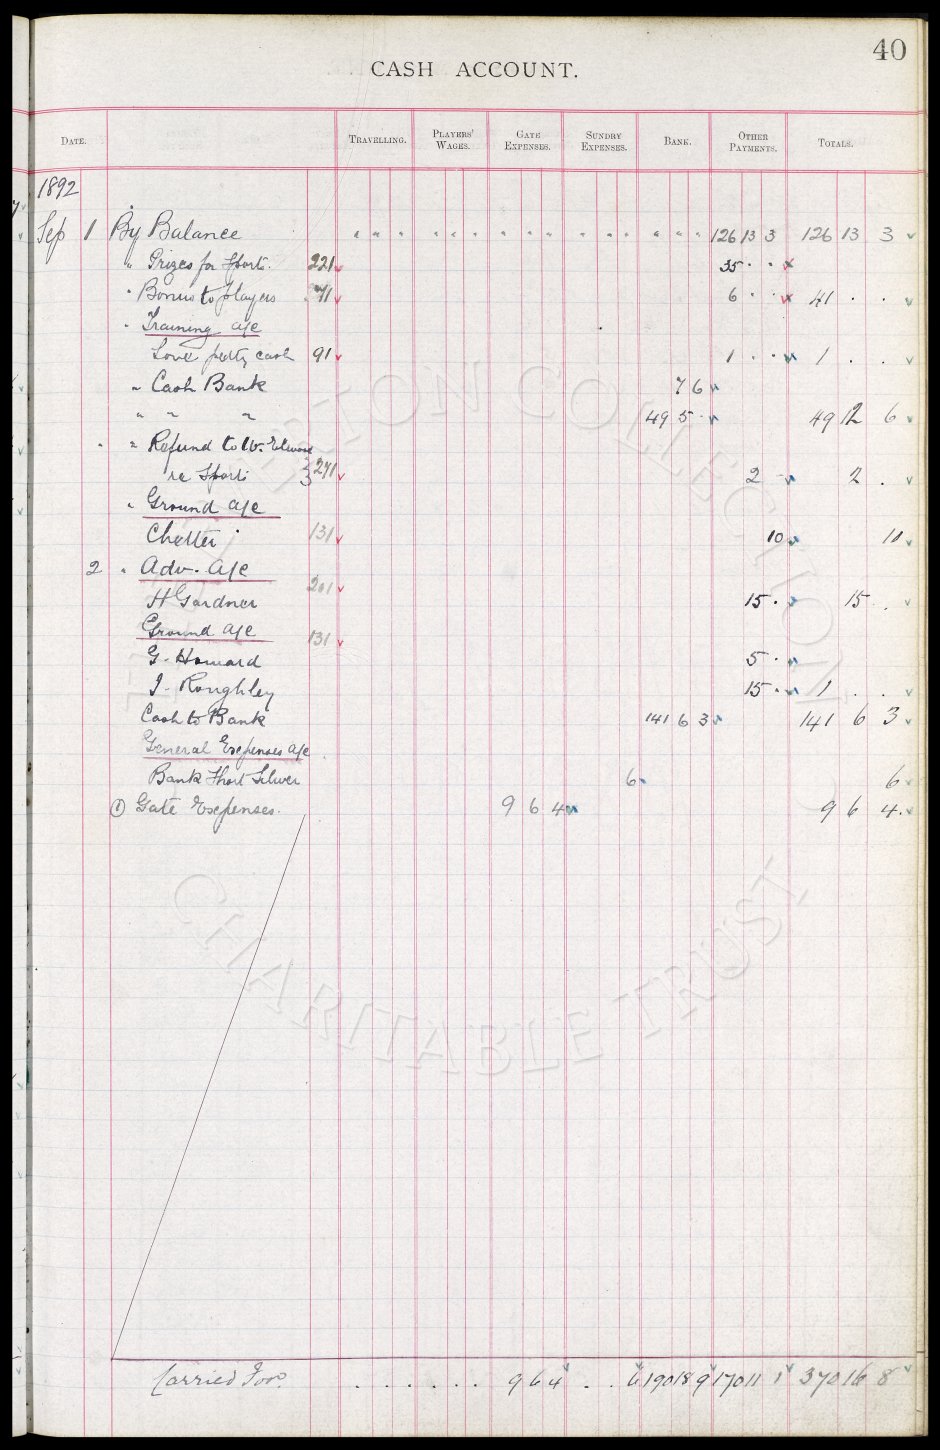 40
CASH ACCOUNT.
DATE. TRAVELLING. PLAYERS' WAGES. GATE EXPENSES. SUNDRY EXPENSES. BANK. OTHER PAYMENTS. TOTALS.
1892
Sep 1 By Balance " " " " " " " " " " " " " " " 126 13 3 126 13 3
" Prizes for Sports. 221 35 . .
" Bonus to players 71 6 . . 41 . .
" Training a/c
Love petty cash 91 1 . . 1 . .
" Cash Bank 7 6
" " " 49 5 . 49 12 6
" " Refund to W.
re Sports 271 2 2 .
" Ground a/c
Chetter 131 10 10
2 " Adv. a/c
H Gardner 201 15 . 15 .
Ground a/c 131
G. Howard 5 .
J. Roughley 15 . 1 . .
Cash to Bank 141 6 3 141 6 3
General Expenses a/c
Bank Short Silver 6 6
① Gate Expenses. 9 6 4 9 6 4.
CHARITABLE TRUST
Carried For. . . . . . . 9 6 4 . . 6 190 18 9 170 11 1 370 16 8